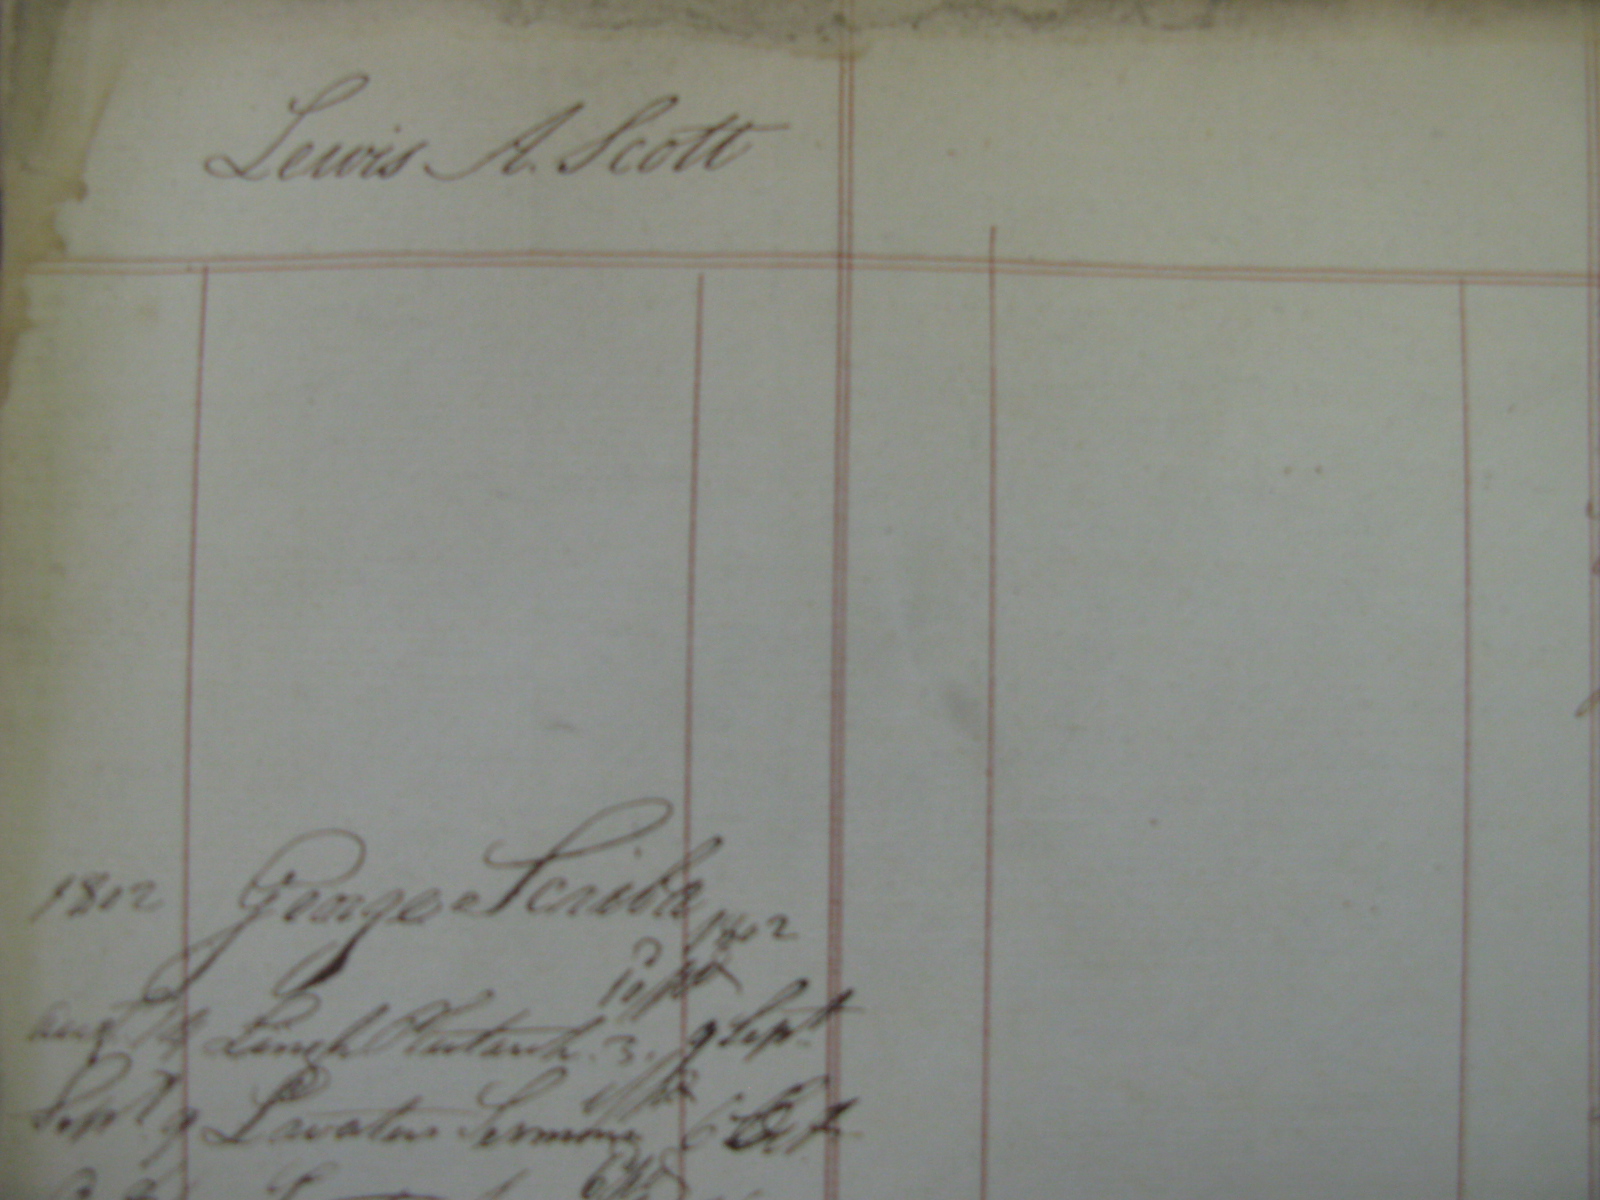 Lewis A. Scott
1802 George Scriba 1802
Augt 14 Langh. Plutarch. 3. 9 Sept.
Sept. 9 Lavaters Sermons 6 Oct.